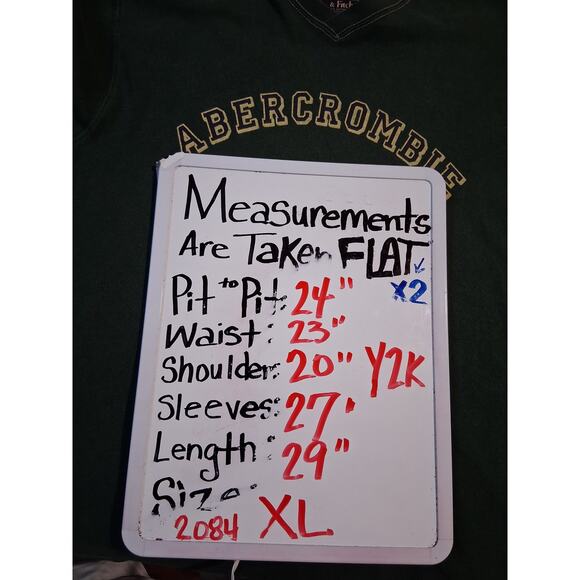 & Fitch
ABERCROMBIE
Measurements
Are Taken FLAT
Pit to Pit: 24" X2
Waist: 23"
Shoulder: 20" Y2K
Sleeves: 27'
Length: 29"
Size:
2084 XL